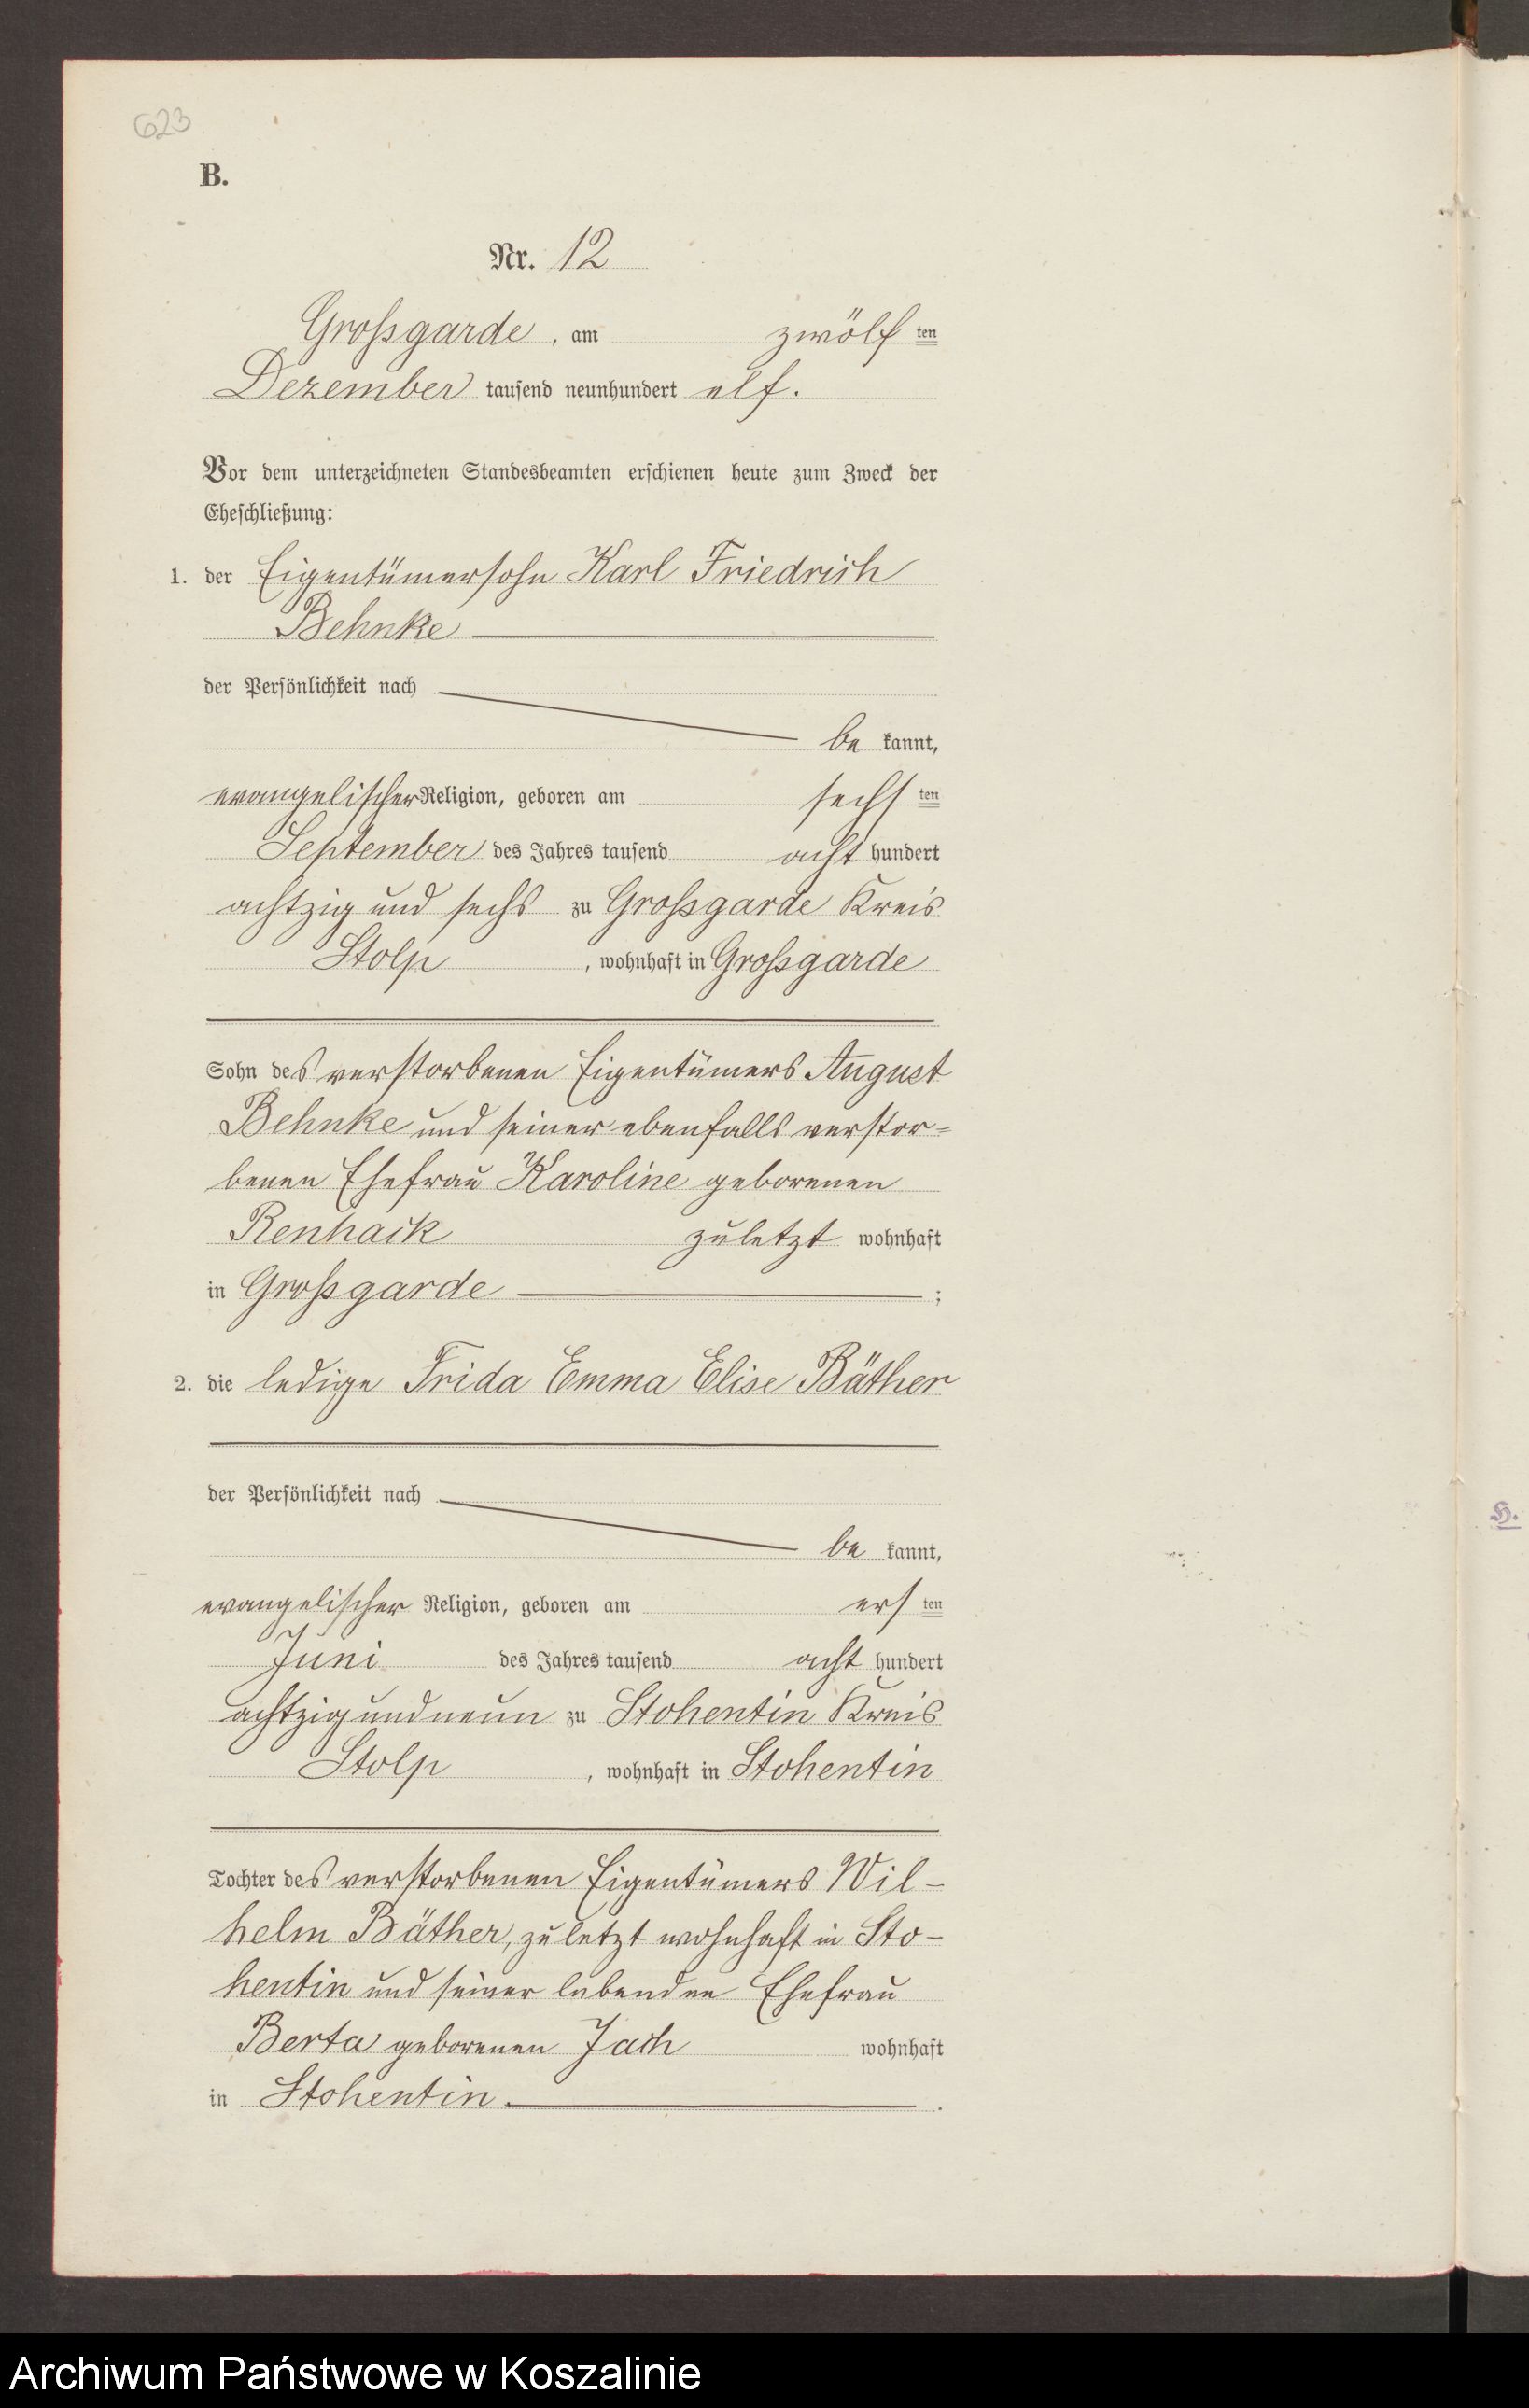 623
B.
Nr. 12
Großgarde, am zwölf ten
Dezember tausend neunhundert elf.
Vor dem unterzeichneten Standesbeamten erschienen heute zum Zweck der
Eheschließung:
1. der Eigentümersohn Karl Friedrich
Behnke
der Persönlichkeit nach
be kannt,
evangelischer Religion, geboren am sechs ten
September des Jahres tausend acht hundert
achtzig und sechs zu Großgarde Kreis
Stolp, wohnhaft in Großgarde
Sohn des verstorbenen Eigentümers August
Behnke und seiner ebenfalls verstor=
benen Ehefrau Karoline geborenen
Renhack zuletzt wohnhaft
in Großgarde ;
2. die ledige Frida Emma Elise Bäther
der Persönlichkeit nach
be kannt,
evangelischer Religion, geboren am ers ten
Juni des Jahres tausend acht hundert
achtzig und neun zu Stohentin Kreis
Stolp, wohnhaft in Stohentin
Tochter des verstorbenen Eigentümers Wil-
helm Bäther, zuletzt wohnhaft in Sto-
hentin und seiner lebenden Ehefrau
Berta geborenen Jach wohnhaft
in Stohentin.
H.
Archiwum Państwowe w Koszalinie